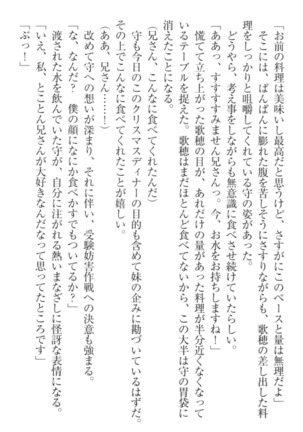 「お前の料理は美味いし最高だと思うけど、さすがにこのペースと量は無理だよ」
そこには、ぱんぱんに膨れた腹を苦しそうにさすりながらも、歌穂の差し出した料
理をしっかりと咀嚼してくれている守の姿があった。
どうやら、考え事をしながらも無意識に食べさせ続けていたらしい。
「ああっ、すすすすみません兄さんっっ。今、お水をお持ちしますね！」
慌てて立ち上がった歌穂の目が、あれだけの量があった料理が半分近くなくなって
いるテーブルを捉えた。歌穂はまだほとんど食べてないから、この大半は守の胃袋に
消えたことになる。
（兄さん、こんなに食べてくれたんだ）
守も今日のこのクリスマスディナーの目的も含めて妹の企みに勘づいているはずだ。
その上でこんなに食べてくれたことが嬉しい。
（ああ、兄さん……！）
改めて守への想いが深まり、それに伴い、受験妨害作戦への決意も強まる。
「な、なんだ？　僕の顔になにか食べかすでもついてるか？」
渡された水を飲んでいた守が、自分に注がれる熱いまなざしに怪訝な表情になる。
「いえ、私、とことん兄さんが大好きなんだなって思ってたところです」
「ぶっ！」